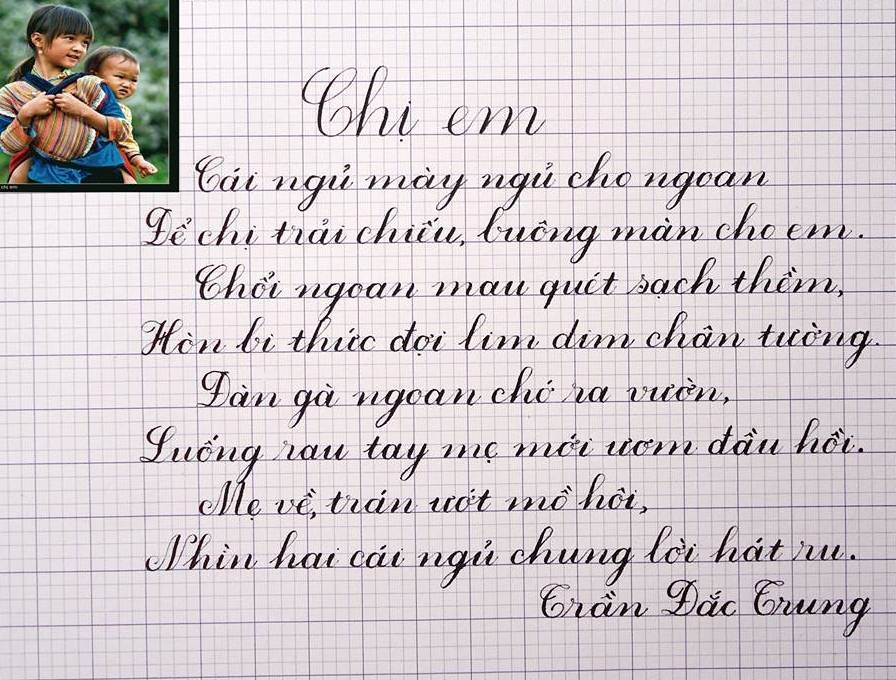 Chị em
Cái ngủ mày ngủ cho ngoan
Để chị trải chiếu, buông màn cho em.
Chổi ngoan mau quét sạch thềm,
Hòn bi thức đợi lim dim chân tường.
Đàn gà ngoan chớ ra vườn,
Luống rau tay mẹ mới ươm đầu hồi.
Mẹ về, trán ướt mồ hôi,
Nhìn hai cái ngủ chung lời hát ru.
Trần Đắc Trung